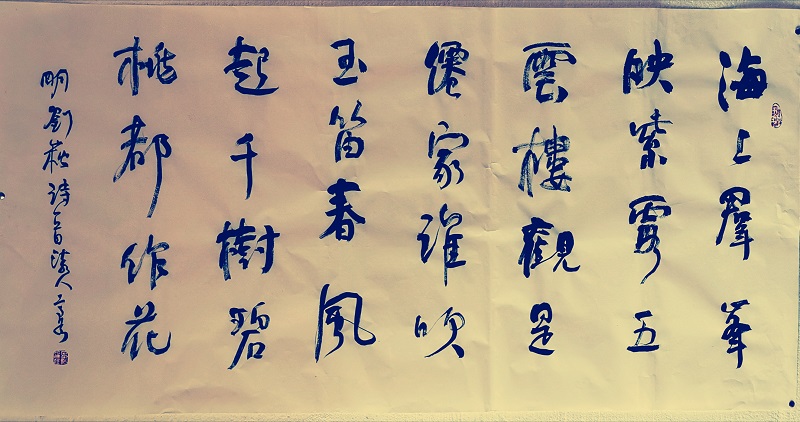 海上群峰
映紫霞五
雲樓觀是
僊家誰吹
玉笛春風
起千樹碧
桃都作花
明劉萩詩一首